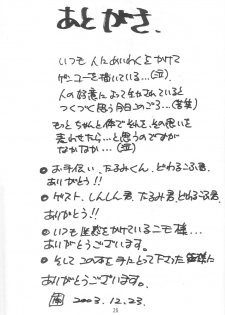 あとがき.
いつも人にめいわくをかけて
ゲンコーを描いている…(泣)
人の好意によって生かされていると
つくづく思う今日このごろ…(苦笑)
もっとちゃんと体でそれを,その思いを
表わせたら…と思うのですが
なかなか…(泣)
●お手伝い,たるみくん,どわるふ君,
ありがとう!!
●ゲスト,しんしん君,たるみ君,どわるふ君,
ありがとう!!
●いつも迷惑をかけているニモ様…
ありがとうございます。
●そしてこの本を手にとって下さった皆様に
ありがとうございます。
2003.12.23.